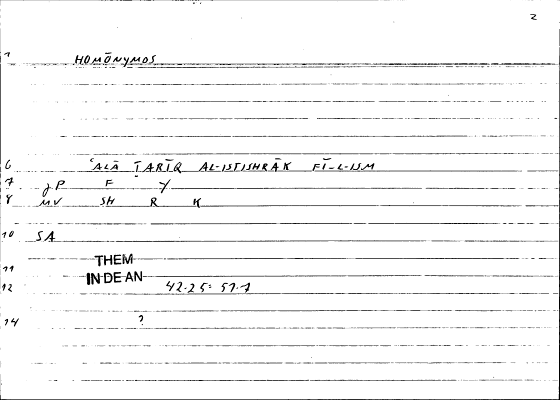 2
1 HOMŌNYMOS
6 ʿALĀ ṬARĪQ AL-ISTISHRĀK FĪ-L-ISM
7 P F Y
8 MV SH R K
10 SA
THEM
11 IN DE AN
12 42.25: 51.1
14 ?